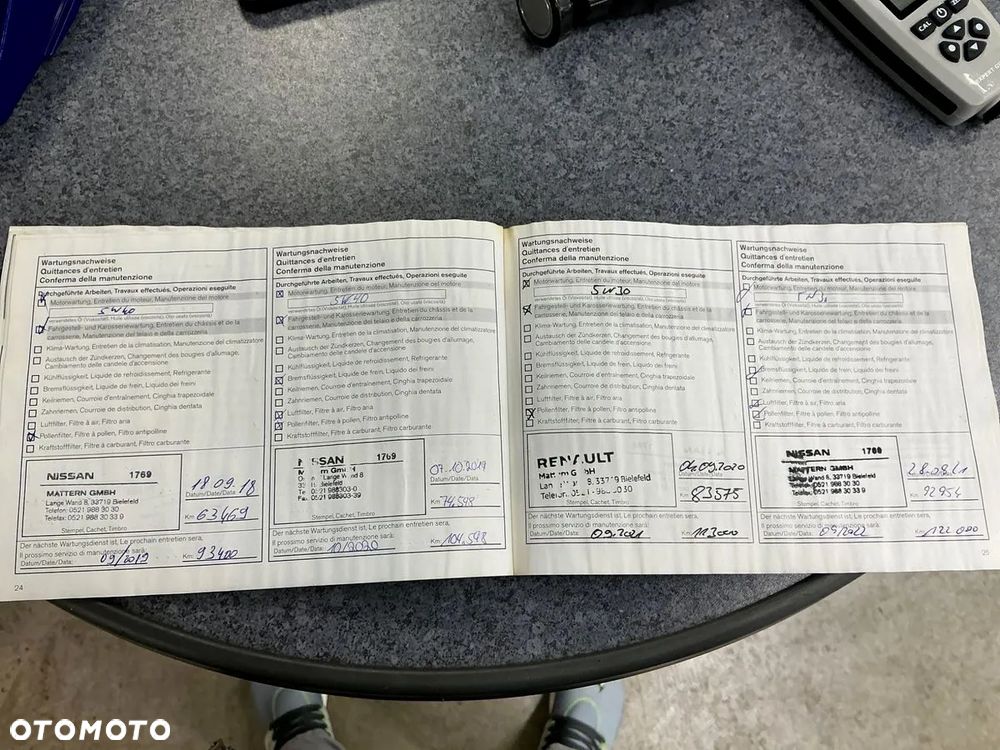 CAL
EXPERT
Wartungsnachweise
Quittances d'entretien
Conferma della manutenzione
Durchgeführte Arbeiten, Travaux effectués, Operazioni eseguite
Motorwartung, Entretien du moteur, Manutenzione del motore
5W40
verwendetes Öl (Viskosität), Huile utilisée (viscosité), Olio usato (viscosità)
Fahrgestell- und Karosseriewartung, Entretien du châssis et de la
carrosserie, Manutenzione del telaio e della carrozzeria
Klima-Wartung, Entretien de la climatisation, Manutenzione del climatizzatore
Austausch der Zündkerzen, Changement des bougies d'allumage,
Cambiamento delle candele d'accensione
Kühlflüssigkeit, Liquide de refroidissement, Refrigerante
Bremsflüssigkeit, Liquide de frein, Liquido dei freni
Keilriemen, Courroie d'entraînement, Cinghia trapezoidale
Zahnriemen, Courroie de distribution, Cinghia dentata
Luftfilter, Filtre à air, Filtro aria
Pollenfilter, Filtre à pollen, Filtro antipolline
Kraftstofffilter, Filtre à carburant, Filtro carburante
NISSAN 1769
MATTERN GMBH
Lange Wand 8, 33719 Bielefeld
Telefon: 0521 988 30 30
Telefax: 0521 988 30 33 9
Stempel, Cachet, Timbro
18.09.18
Datum/Date/Data:
Km: 63469
Der nächste Wartungsdienst ist, Le prochain entretien sera,
Il prossimo servizio di manutenzione sarà:
Datum/Date/Data: 09/2019
Km: 93400
24
Wartungsnachweise
Quittances d'entretien
Conferma della manutenzione
Durchgeführte Arbeiten, Travaux effectués, Operazioni eseguite
Motorwartung, Entretien du moteur, Manutenzione del motore
5W40
verwendetes Öl (Viskosität), Huile utilisée (viscosité), Olio usato (viscosità)
Fahrgestell- und Karosseriewartung, Entretien du châssis et de la
carrosserie, Manutenzione del telaio e della carrozzeria
Klima-Wartung, Entretien de la climatisation, Manutenzione del climatizzatore
Austausch der Zündkerzen, Changement des bougies d'allumage,
Cambiamento delle candele d'accensione
Kühlflüssigkeit, Liquide de refroidissement, Refrigerante
Bremsflüssigkeit, Liquide de frein, Liquido dei freni
Keilriemen, Courroie d'entraînement, Cinghia trapezoidale
Zahnriemen, Courroie de distribution, Cinghia dentata
Luftfilter, Filtre à air, Filtro aria
Pollenfilter, Filtre à pollen, Filtro antipolline
Kraftstofffilter, Filtre à carburant, Filtro carburante
SSAN 1769
GmbH
Lange Wand 8
Bielefeld
Stempel, Cachet, Timbro
07.10.2019
Datum/Date/Data:
Km: 74.598
Der nächste Wartungsdienst ist, Le prochain entretien sera,
Il prossimo servizio di manutenzione sarà:
Datum/Date/Data: 10/2020
Km: 104.598
Wartungsnachweise
Quittances d'entretien
Conferma della manutenzione
Durchgeführte Arbeiten, Travaux effectués, Operazioni eseguite
Motorwartung, Entretien du moteur, Manutenzione del motore
5W30
verwendetes Öl (Viskosität), Huile utilisée (viscosité), Olio usato (viscosità)
Fahrgestell- und Karosseriewartung, Entretien du châssis et de la
carrosserie, Manutenzione del telaio e della carrozzeria
Klima-Wartung, Entretien de la climatisation, Manutenzione del climatizzatore
Austausch der Zündkerzen, Changement des bougies d'allumage,
Cambiamento delle candele d'accensione
Kühlflüssigkeit, Liquide de refroidissement, Refrigerante
Bremsflüssigkeit, Liquide de frein, Liquido dei freni
Keilriemen, Courroie d'entraînement, Cinghia trapezoidale
Zahnriemen, Courroie de distribution, Cinghia dentata
Luftfilter, Filtre à air, Filtro aria
Pollenfilter, Filtre à pollen, Filtro antipolline
Kraftstofffilter, Filtre à carburant, Filtro carburante
RENAULT
8, 33719 Bielefeld
Stempel, Cachet, Timbro
04.09.2020
Datum/Date/Data:
Km: 83575
Der nächste Wartungsdienst ist, Le prochain entretien sera,
Il prossimo servizio di manutenzione sarà:
Datum/Date/Data: 09.2021
Km: 113000
Wartungsnachweise
Quittances d'entretien
Conferma della manutenzione
Durchgeführte Arbeiten, Travaux effectués, Operazioni eseguite
Motorwartung, Entretien du moteur, Manutenzione del motore
verwendetes Öl (Viskosität), Huile utilisée (viscosité), Olio usato (viscosità)
Fahrgestell- und Karosseriewartung, Entretien du châssis et de la
carrosserie, Manutenzione del telaio e della carrozzeria
Klima-Wartung, Entretien de la climatisation, Manutenzione del climatizzatore
Austausch der Zündkerzen, Changement des bougies d'allumage,
Cambiamento delle candele d'accensione
Kühlflüssigkeit, Liquide de refroidissement, Refrigerante
Bremsflüssigkeit, Liquide de frein, Liquido dei freni
Keilriemen, Courroie d'entraînement, Cinghia trapezoidale
Zahnriemen, Courroie de distribution, Cinghia dentata
Luftfilter, Filtre à air, Filtro aria
Pollenfilter, Filtre à pollen, Filtro antipolline
Kraftstofffilter, Filtre à carburant, Filtro carburante
NISSAN 1769
MATTERN GMBH
Lange Wand 8, 33719 Bielefeld
Telefon: 0521 988 30 30
Telefax: 0521 988 30 33 9
Stempel, Cachet, Timbro
28.08.21
Datum/Date/Data:
Km: 92954
Der nächste Wartungsdienst ist, Le prochain entretien sera,
Il prossimo servizio di manutenzione sarà:
Datum/Date/Data: 09/2022
Km: 122 000
25
OTOMOTO